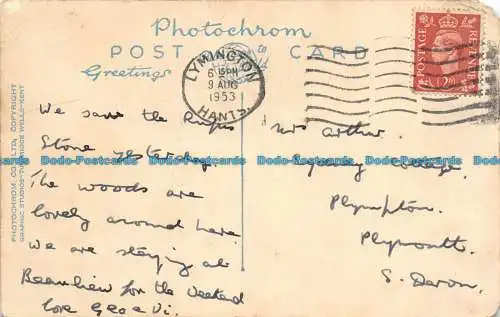 Photochrom
POST CARD
Greetings to
LYMINGTON
6 15 PM
9 AUG
1953
HANTS.
POSTAGE REVENUE
PHOTOCHROM CO. LTD., COPYRIGHT
GRAPHIC STUDIOS - TUNBRIDGE WELLS - KENT
We saw the Rufus
Stone yesterday.
The woods are
lovely around here
We are staying at
Beaulieu for the weekend
love Geo & Vi.
Mrs Arthur.
Cottage.
Plympton.
Plymouth.
S. Devon.
Dodo-Postcards Dodo-Postcards Dodo-Postcards Dodo-Postcards Dodo-Postcards Dodo-Postcards